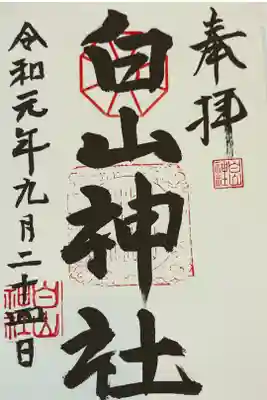 奉拝
白山神社
令和元年九月二十四日
白山
神社